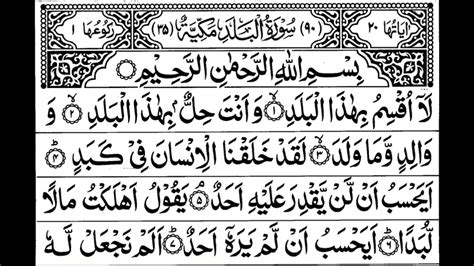 اٰيَاتُهَا ٢٠ (٩٠) سُوْرَةُ الْبَلَدِ مَكِّيَّةٌ (٣٥) رُكُوْعُهَا ١
بِسْمِ اللّٰهِ الرَّحْمٰنِ الرَّحِيْمِ
لَاۤ اُقْسِمُ بِهٰذَا الْبَلَدِ ۙ﴿١﴾ وَ اَنْتَ حِلٌّۢ بِهٰذَا الْبَلَدِ ۙ﴿٢﴾ وَ
وَالِدٍ وَّمَا وَلَدَ ۙ﴿٣﴾ لَقَدْ خَلَقْنَا الْاِنْسَانَ فِىْ كَبَدٍ ؕ﴿٤﴾
اَيَحْسَبُ اَنْ لَّنْ يَّقْدِرَ عَلَيْهِ اَحَدٌ ۘ﴿٥﴾ يَقُوْلُ اَهْلَكْتُ مَالًا
لُّبَدًا ؕ﴿٦﴾ اَيَحْسَبُ اَنْ لَّمْ يَرَهٗۤ اَحَدٌ ؕ﴿٧﴾ اَلَمْ نَجْعَلْ لَّهٗ